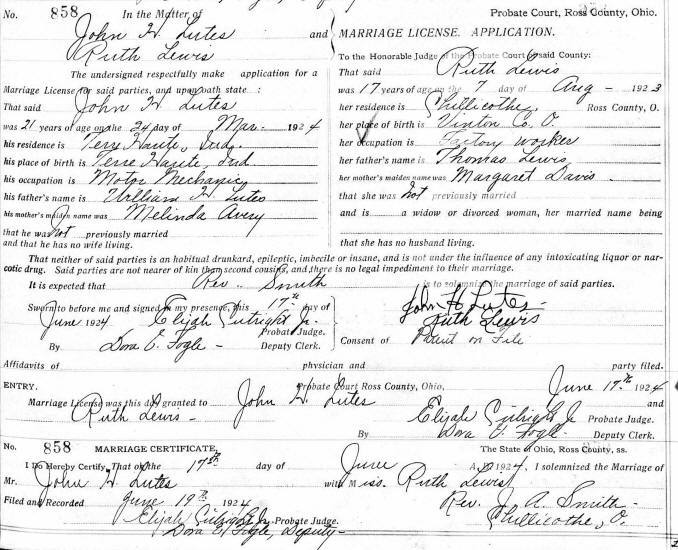 No. 858 In the Matter of Probate Court, Ross County, Ohio.
John H. Lutes and MARRIAGE LICENSE. APPLICATION.
Ruth Lewis
The undersigned respectfully make application for a
Marriage License for said parties, and upon oath state :
That said John H. Lutes
was 21 years of age on the 24 day of Mar. 1924
his residence is Terre Haute, Ind.
his place of birth is Terre Haute, Ind.
his occupation is Motor Mechanic
his father's name is William H. Lutes
his mother's maiden name was Melinda Avery
that he was not previously married
and that he has no wife living.
To the Honorable Judge of the Probate Court of said County:
That said Ruth Lewis
was 17 years of age on the 7 day of Aug - 1923
her residence is Chillicothe, Ross County, O.
her place of birth is Vinton Co. O.
her occupation is Factory worker
her father's name is Thomas Lewis
her mother's maiden name was Margaret Davis
that she was not previously married
and is a widow or divorced woman, her married name being
that she has no husband living.
That neither of said parties is an habitual drunkard, epileptic, imbecile or insane, and is not under the influence of any intoxicating liquor or nar-
cotic drug. Said parties are not nearer of kin than second cousins, and there is no legal impediment to their marriage.
It is expected that Rev. Smith is to solemnize the marriage of said parties.
Sworn to before me and signed in my presence, this 17th day of
June 1924 Elijah Cutright Jr. Probate Judge.
By Dora E. Fogle - Deputy Clerk.
John H Lutes
Ruth Lewis
Consent of Parent on File
Affidavits of physician and party filed.
ENTRY. Probate Court Ross County, Ohio, June 17th 1924
Marriage License was this day granted to John H. Lutes and
Ruth Lewis - Elijah Cutright Jr Probate Judge.
By Dora E. Fogle Deputy Clerk.
No. 858 MARRIAGE CERTIFICATE. The State of Ohio, Ross County, ss.
I Do Hereby Certify, That on the 17th day of June A. D. 1924, I solemnized the Marriage of
Mr. John H Lutes with Miss. Ruth Lewis
Filed and Recorded June 19th 1924 Rev. J. A. Smith -
Elijah Cutright Jr. Probate Judge. Chillicothe, O.
Dora E. Fogle, Deputy -